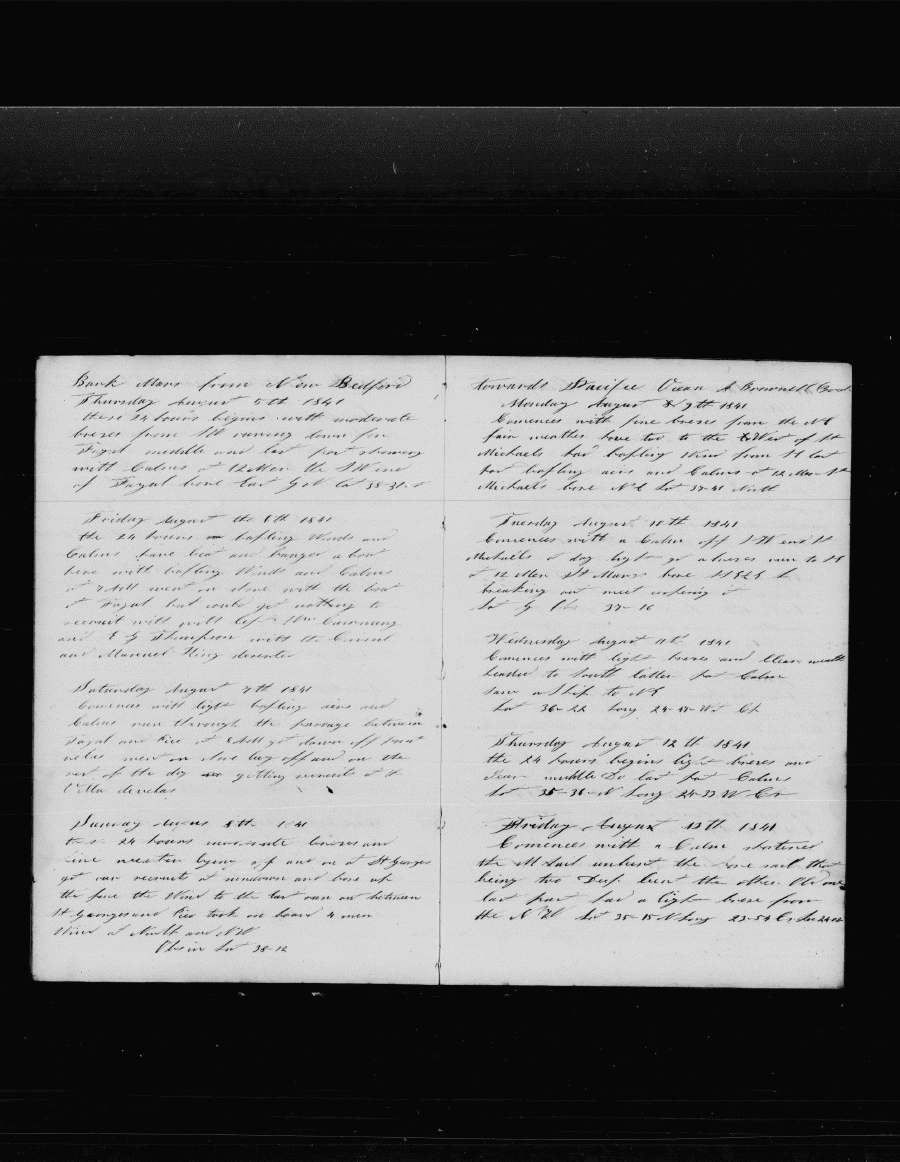 Bark Mars from New Bedford
Thursday August 5th 1841
these 24 hours begins with moderate
brezes from SW runing down for
Fayal middle and last part showery
with Calms at 12 Mer the SW end
of Fayal bore East Lat 38-31
Friday August the 6th 1841
the 24 hours bafling Winds and
Calms have beat and a boat
here with bafling Winds and Calms
at 7 AM went in shore with the boat
at Fayal but could get nothing to
recruit with left Wm
and E G Thompson with the Consul
and Manuel King deserted
Saturday August 7th 1841
Comences with light bafling airs and
Calms run through the passage between
Fayal and Pico at 8 AM got down off
velas went on shore lay off and on the
rest of the day getting recruits at
Villa develas
Sunday August 8th 1841
these 24 hours moderate brezes and
fine weather lying off and on at St Georges
got our recruits at sundown and bore up
the Wind to the East run out between
St Georges and Pico took on board 4 men
Wind at North and NW
Obs in Lat 38-12
towards Pacific Ocean A Brownell
Monday August 9th 1841
Comences with fine brezes from the NE
fair weather hove too to the West of St
Michaels had bafling Wind from
part bafling airs and Calms at 12 Mer St
Michaels bore NE Lat 37-41 North
Tuesday August 10th 1841
Comences with a Calm off SW end St
Michaels at day light got a breze run to
at 12 Mer St Marys bore
breaking out meet
Lat 37-16
Wednesday August 11th 1841
Comences with light brezes and Clear weather
headed to South latter part Calm
saw a Ship to NE
Lat 36-22 Long 24-47 W
Thursday August 12th 1841
the 24 hours begins light brezes and
Clear middle Do last part Calms
Lat 35-36 N Long 24-33 W Cr
Friday August 13th 1841
Comences with a Calm
the M Sail unbent the sail that
being too Deep bent the other Old one
last part had a light breze from
the N W Lat 35-15 N Long 23-54